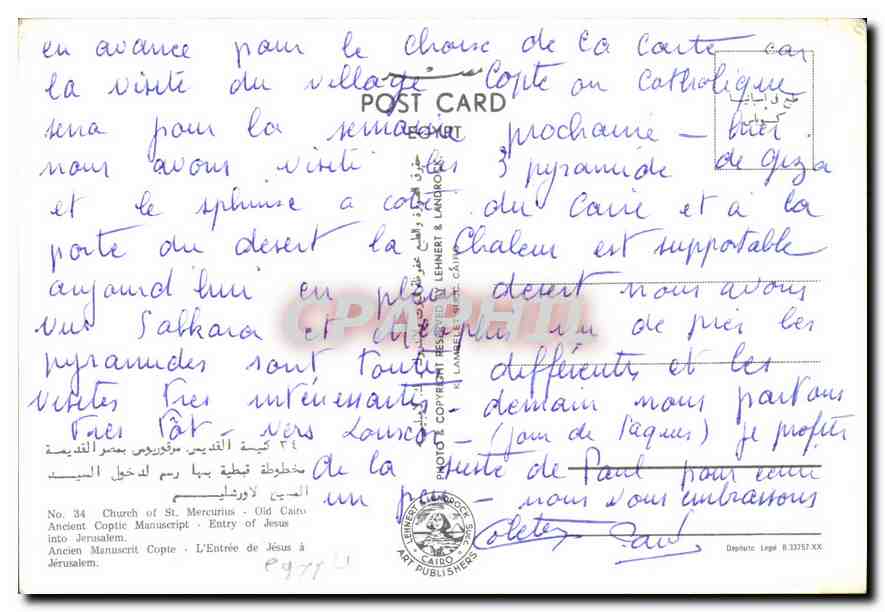 en avance pour le choise de la carte car
la visite du village Copte ou Catholique
sera pour la semaine prochaine — hier
nous avons visité les 3 pyramide de giza
et le sphinse a coté du Caire et à la
porte du desert la Chaleur est supportable
aujourd'hui en plein desert nous avons
vus Sakkara et vu de près les
pyramides sont toutes différentes et les
visites très intéressantes — demain nous partons
très tôt — vers Louxor — (jour de Paques) je profite
de la sieste de Paul pour écrire
un peu — nous vous embrassons
Colette Paul
مصر
POST CARD
EGYPT
طبع في اسبانيا
PHOTO & COPYRIGHT RESERVED BY LEHNERT & LANDROCK
K. LAMBELET SUCC. CAIRO
CPAPHIL
٣٤ كنيسة القديس مرقوريوس بمصر القديمة
مخطوطة قبطية بها رسم لدخول السيد
المسيح لاورشليم
No. 34 Church of St. Mercurius - Old Cairo
Ancient Coptic Manuscript - Entry of Jesus
into Jerusalem.
Ancien Manuscrit Copte - L'Entrée de Jésus à
Jérusalem.
LEHNERT & LANDROCK SUCC.
CAIRO
ART PUBLISHERS
Depósito Legal B. 33757-XX